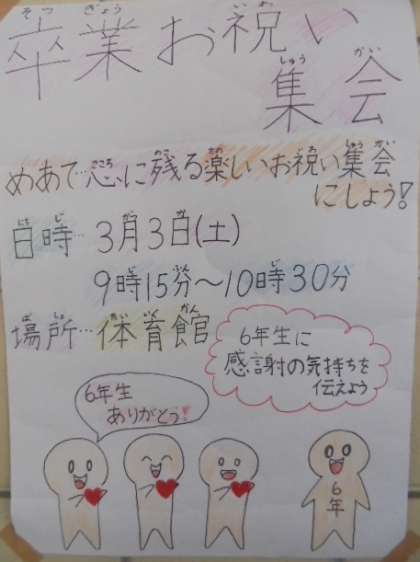 卒業お祝い
集会
めあて…心に残る楽しいお祝い集会
にしよう!
日時…3月3日(土)
9時15分～10時30分
場所…体育館
6年生に
感謝の気持ちを
伝えよう
6年生
ありがとう!
6年